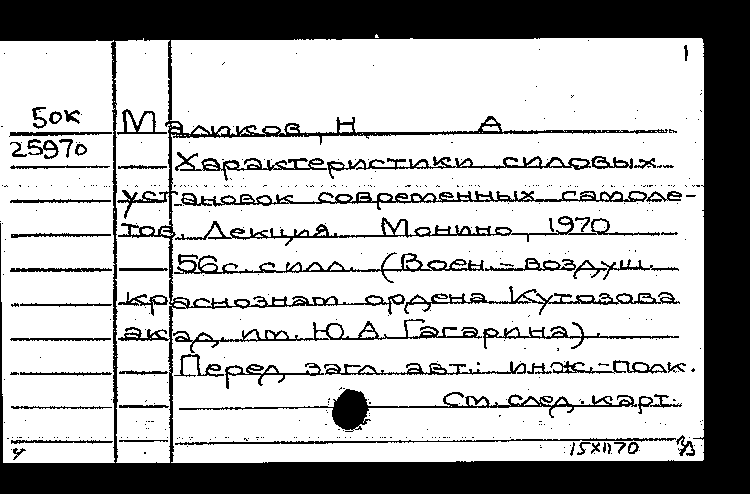 1
50к Маликов, Н А
25970
Характеристики силовых
установок современных самоле-
тов. Лекция. Монино, 1970.
56с. с илл. (Воен.-воздуш.
краснознам. ордена Кутузова
акад. им. Ю.А. Гагарина).
Перед загл. авт.: инж.-полк.
См. след. карт.
15XII70